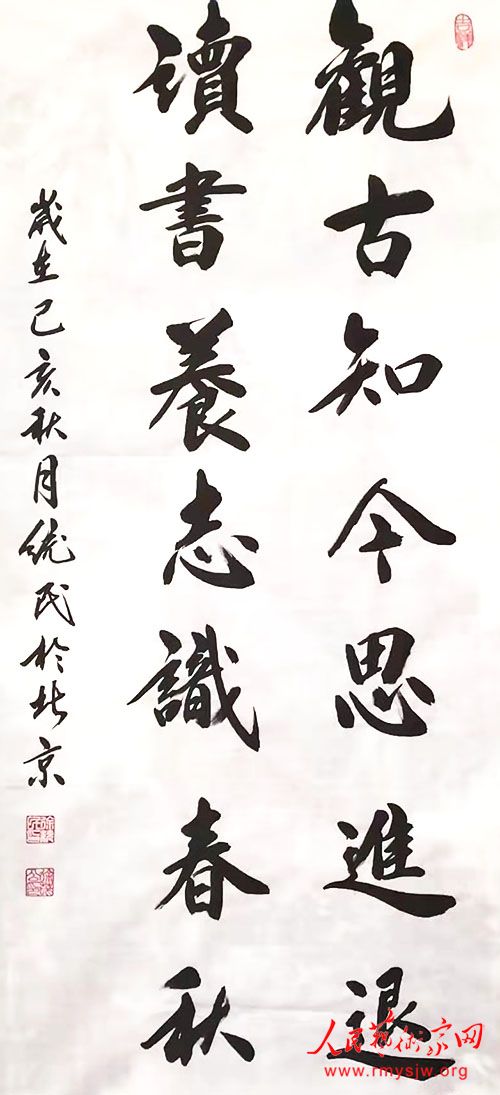 觀古知今思進退
讀書養志識春秋
歲在己亥秋月統民於北京
人民藝術家网
www.rmysjw.org